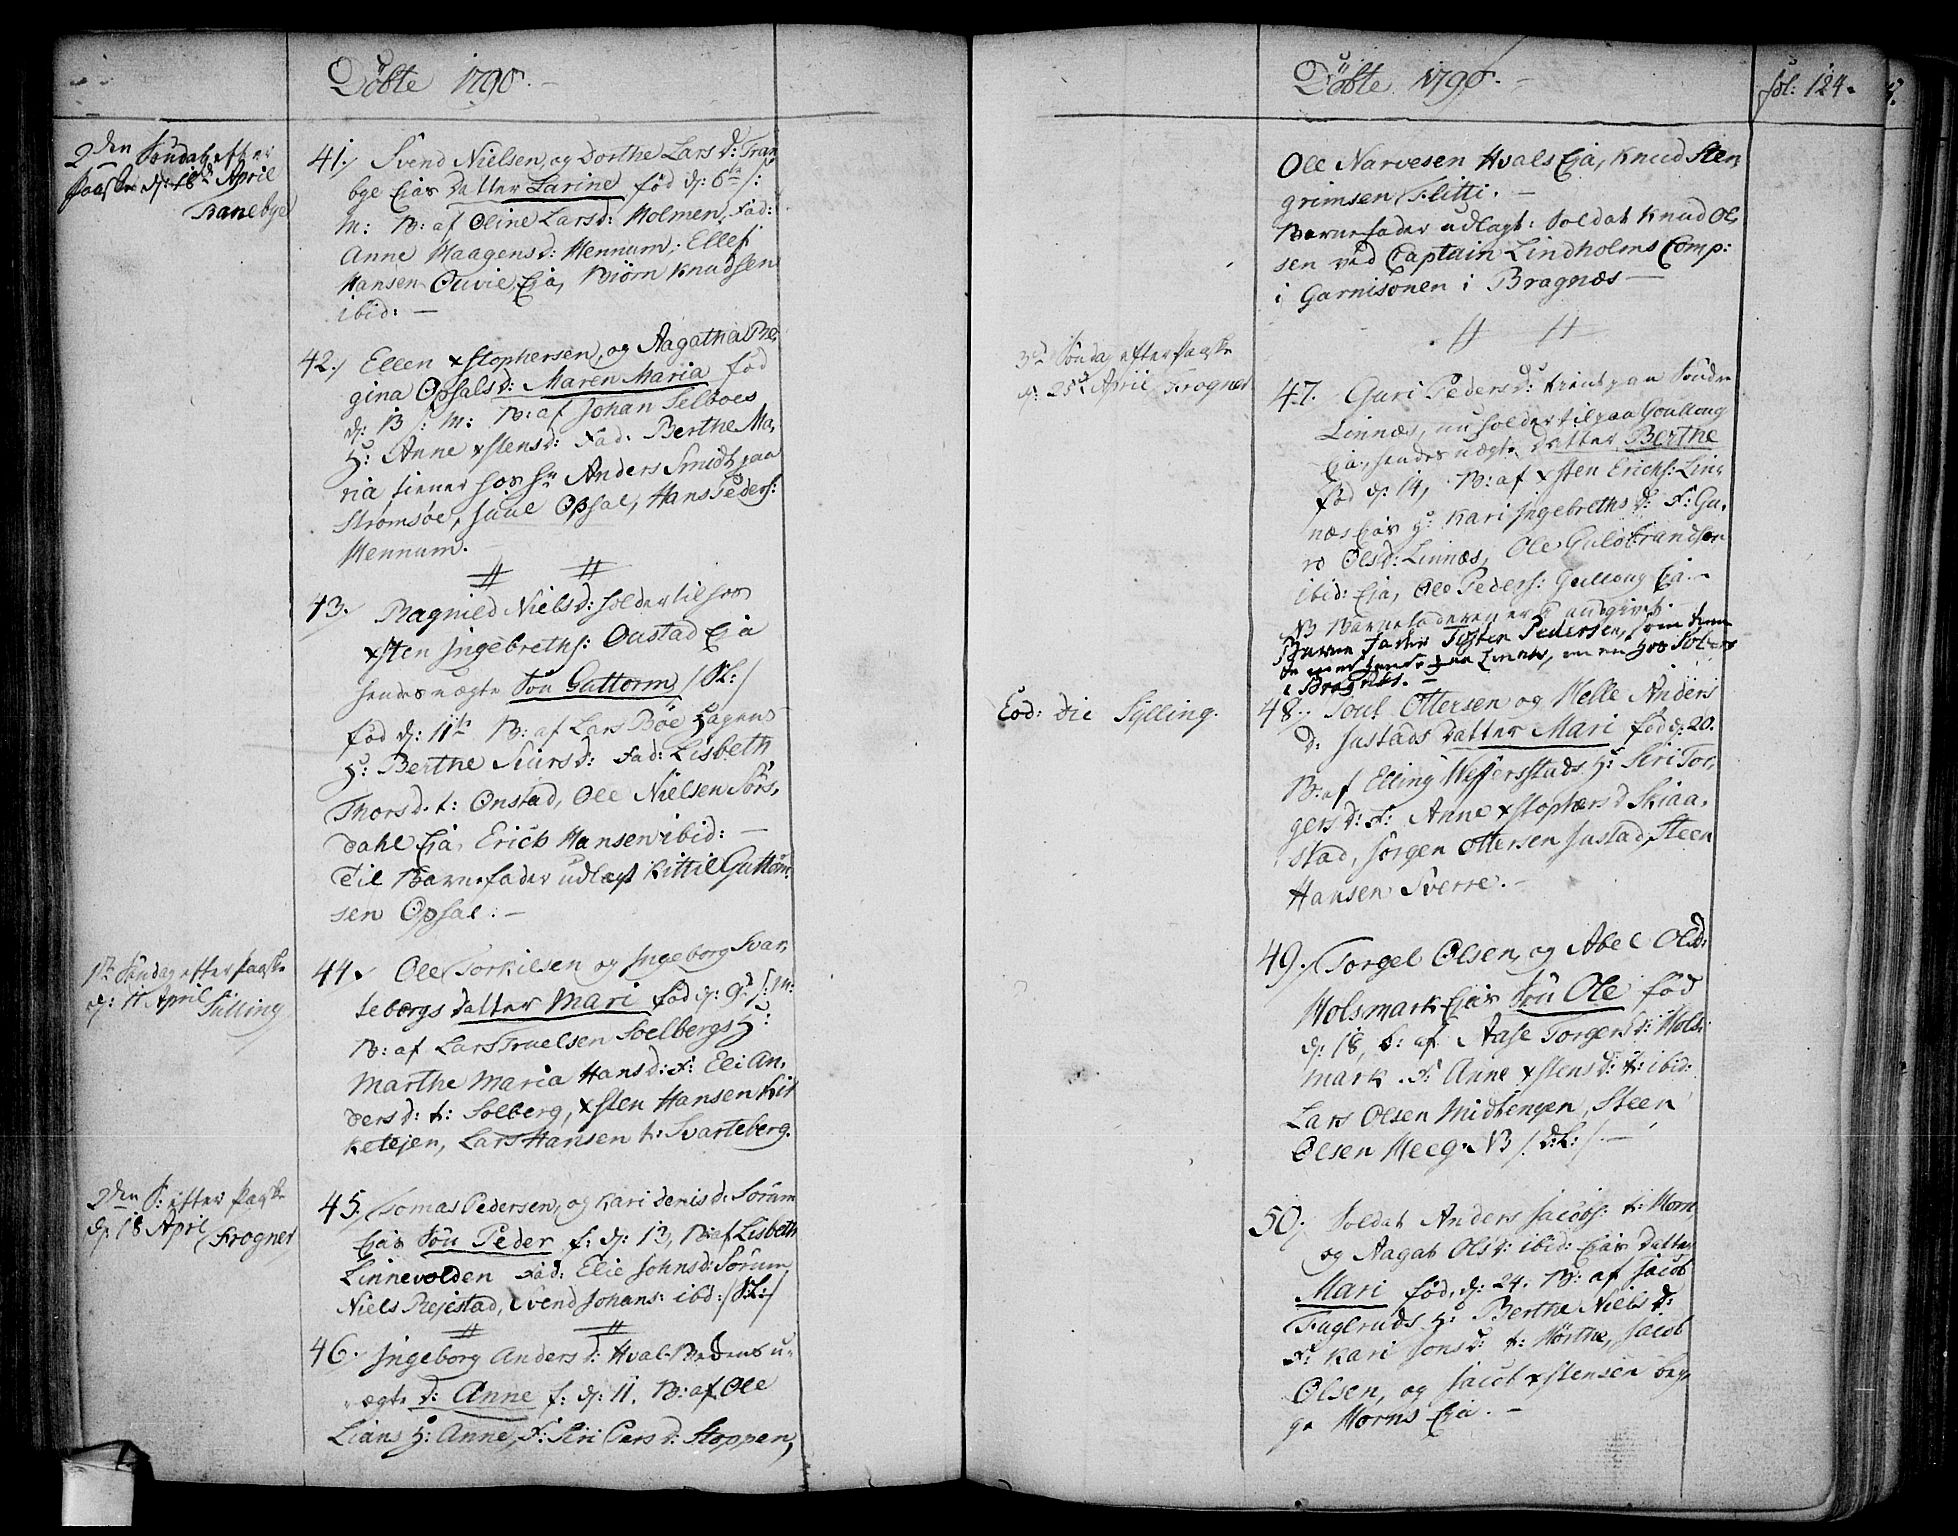 Döbte 1790.
2den Söndag efter
Paaske d: 18d April
Tranebye
41. Svend Nielsen og Dorthe Lars d: Tran
bye Eje Datter Larine född d: 6te /:
M: B: af Oline Larsd: Holmen, Fad:
Anne Haagensd: Hennum, Ellef
Hansen Eje, Biörn Knudsen
ibid: —
42. Ellen xstophersen og Aagatha Re,
gina Opsalsd: Maren Maria föd
d: 13 /: M: B: af Johan Selboes
H: Anne xstensd: Fad: Berthe Ma,
ria tiener hos Hr Anders Smidt paa
Strömsöe, Juul Opsal, Hans Peders:
Hennum. —
43. Ragnild Nielsd: holder til hos
xsten Ingebreths: Onstad Eje
hendes uægte Sön Guttorm /:Sl:/
föd d: 11te B: af Lars Böe Hagens
H: Berthe Siursd: Fad: Lisbeth
Thorsd: t: Onstad, Ole Nielsen Sörs,
dahl Eje, Erich Hansen ibid: —
Til Barnefader udlagt Kittil Guttorm
sen Opsal: —
1ste Söndag efter Paaske
d: 11 April Sylling
44. Ole Torkilsen og Ingeborg Svar,
tebergs Datter Mari föd d: 9d /: M:
B: af Lars Truelsen Solbergs H:
Marthe Maria Hansd: F: Eli An,
dersd: t: Solberg, xsten Hansen Kit
ketejen, Lars Hansen t: Svarteberg.
2den S: efter Paaske
d: 18 April Frogner
45. Tomas Pedersen og Kari Denisd: Sörum
Eje Sön Peder f: d: 13, B: af Lisbeth
Linnevolden Fad: Elie Johnsd: Sörum
Niels Prejestad, Svend Johans: ibd: /:Sl:/
46. Ingeborg Andersd: Hval-Bedens u,
ægte d: Anne f: d: 11. B: af Ole
Lians H: Anne, F: Siri Larsd: Stoppen,
Döbte 1790. —
fol: 124.
Ole Narvesen Hvals Eje, Knud Sten,
grimsen Flitti. —
Barnefader udlagt: Soldat Knud Ol,
sen ved Captain Lindholms Comp:
i Garnisonen i Bragnæs —
3d Söndag efter Paaske
d: 25d April Frogner
47. Guri Pedersd: tient paa Söndre
Linnæs, nu holder til paa Goullong
Eje, hendes uægte Datter Berthe
föd d: 14, B: af xsten Erichs: Lin,
næs Eje H: Kari Ingebrethsd: F: Gu,
ro Olsd: Linnæs, Ole Guldbrandsen
ibid: Eje, Ole Peders: Gullong Eje. —
NB Barnefaderen er angivet
Barne Fader Pedersen, som tiente
paa Linnes, nu hos
i Bragnæs. —
Eod: Die Sylling.
48. Poul Ottersen og Helle Anders
d: Justads Datter Mari föd d: 20.
B: af Elling Weffersstads H: Siri Tor,
gersd: F: Anne xstophersd Skiaa,
stad, Jörgen Ottersen Justad, Steen
Hansen Sverre. —
49. Torgel Olsen og Abel Olsd:
Holsmark Eje Sön Ole föd
d: 18, B: af Aase Torgersd: Hols:
mark. F: Anne xstensd: t: ibid:
Lars Olsen Midtengen, Steen
Olsen Meeg. NB /:d:L:/. —
50. Soldat Anders Jacobs: t: Horn,
og Aagat Olsd: ibid: Eje Datter
Mari föd, d: 24. B: af Jacob
Fagleruds H: Berthe Nielsd:
F: Kari Jonsd: t: Hörthe, Jacob
Olsen, og Jacob xstensen beg,
ge Horns Eje. —